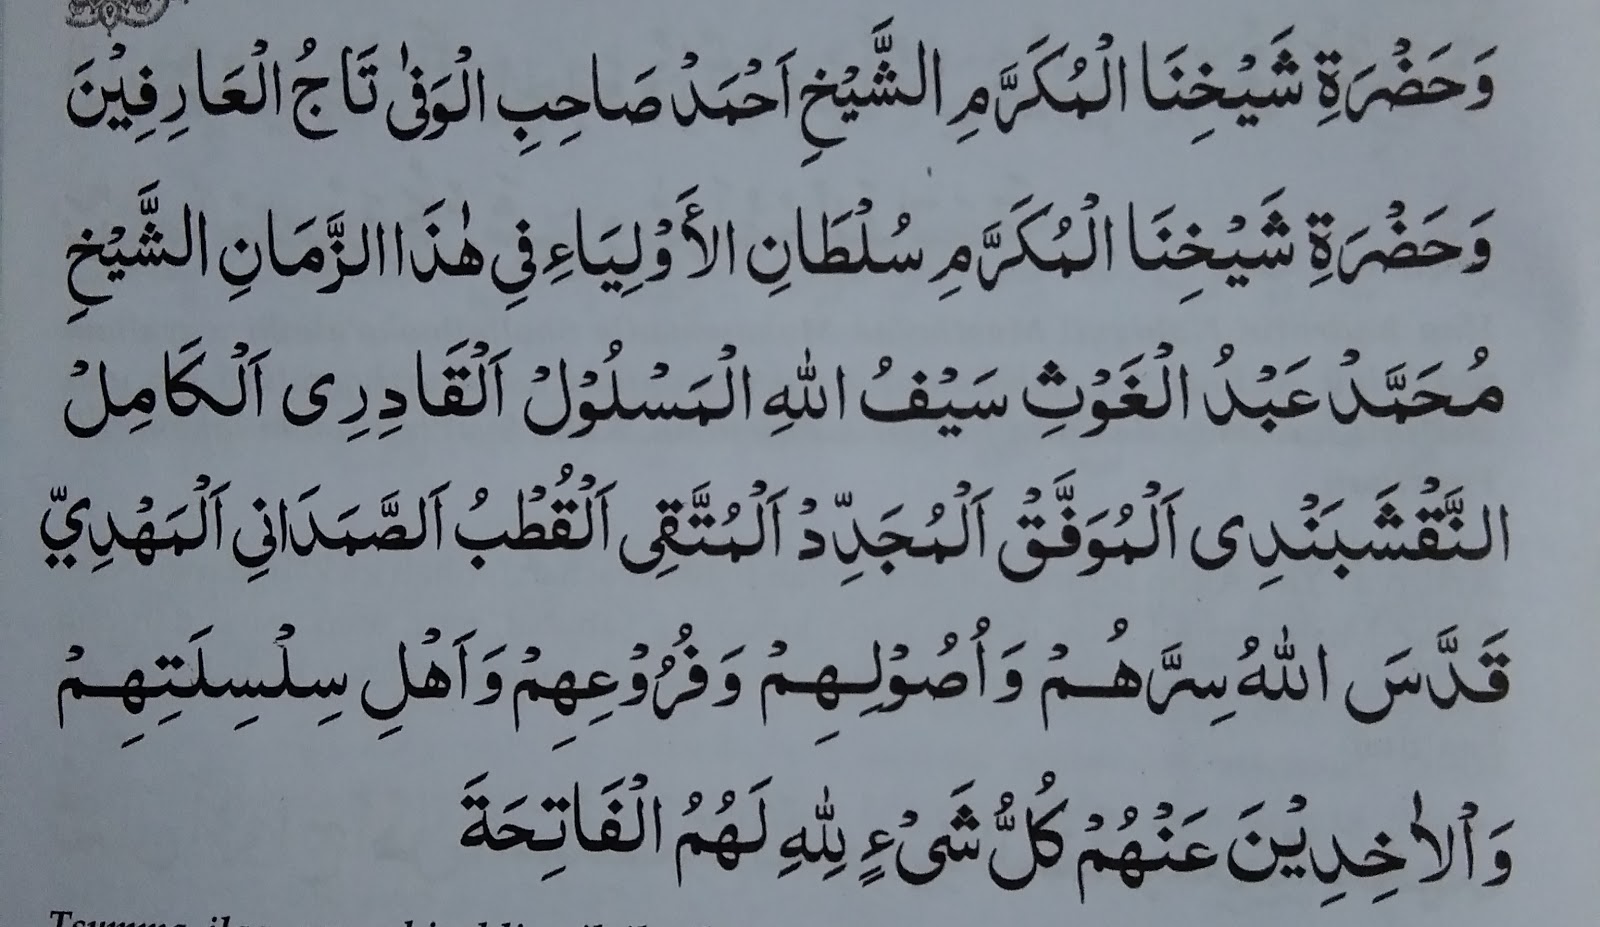 وَحَضْرَةِ شَيْخِنَا الْمُكَرَّمِ الشَّيْخِ اَحْمَدْ صَاحِبِ الْوَفٰى تَاجُ الْعَارِفِيْنَ
وَحَضْرَةِ شَيْخِنَا الْمُكَرَّمِ سُلْطَانِ الأَوْلِيَاءِ فِي هٰذَا الزَّمَانِ الشَّيْخِ
مُحَمَّدْ عَبْدُ الْغَوْثِ سَيْفُ اللهِ الْمَسْلُوْلْ اَلْقَادِرِى اَلْكَامِلْ
النَّقْشَبَنْدِى اَلْمُوَفَّقْ اَلْمُجَدِّدْ اَلْمُتَّقِى اَلْقُطْبُ اَلصَّمَدَانِي اَلْمَهْدِيّ
قَدَّسَ اللهُ سِرَّهُمْ وَاُصُوْلِهِمْ وَفُرُوْعِهِمْ وَاَهْلِ سِلْسِلَتِهِمْ
وَاْلاٰخِدِيْنَ عَنْهُمْ كُلُّ شَىْءٍ لِلّٰهِ لَهُمُ الْفَاتِحَةَ